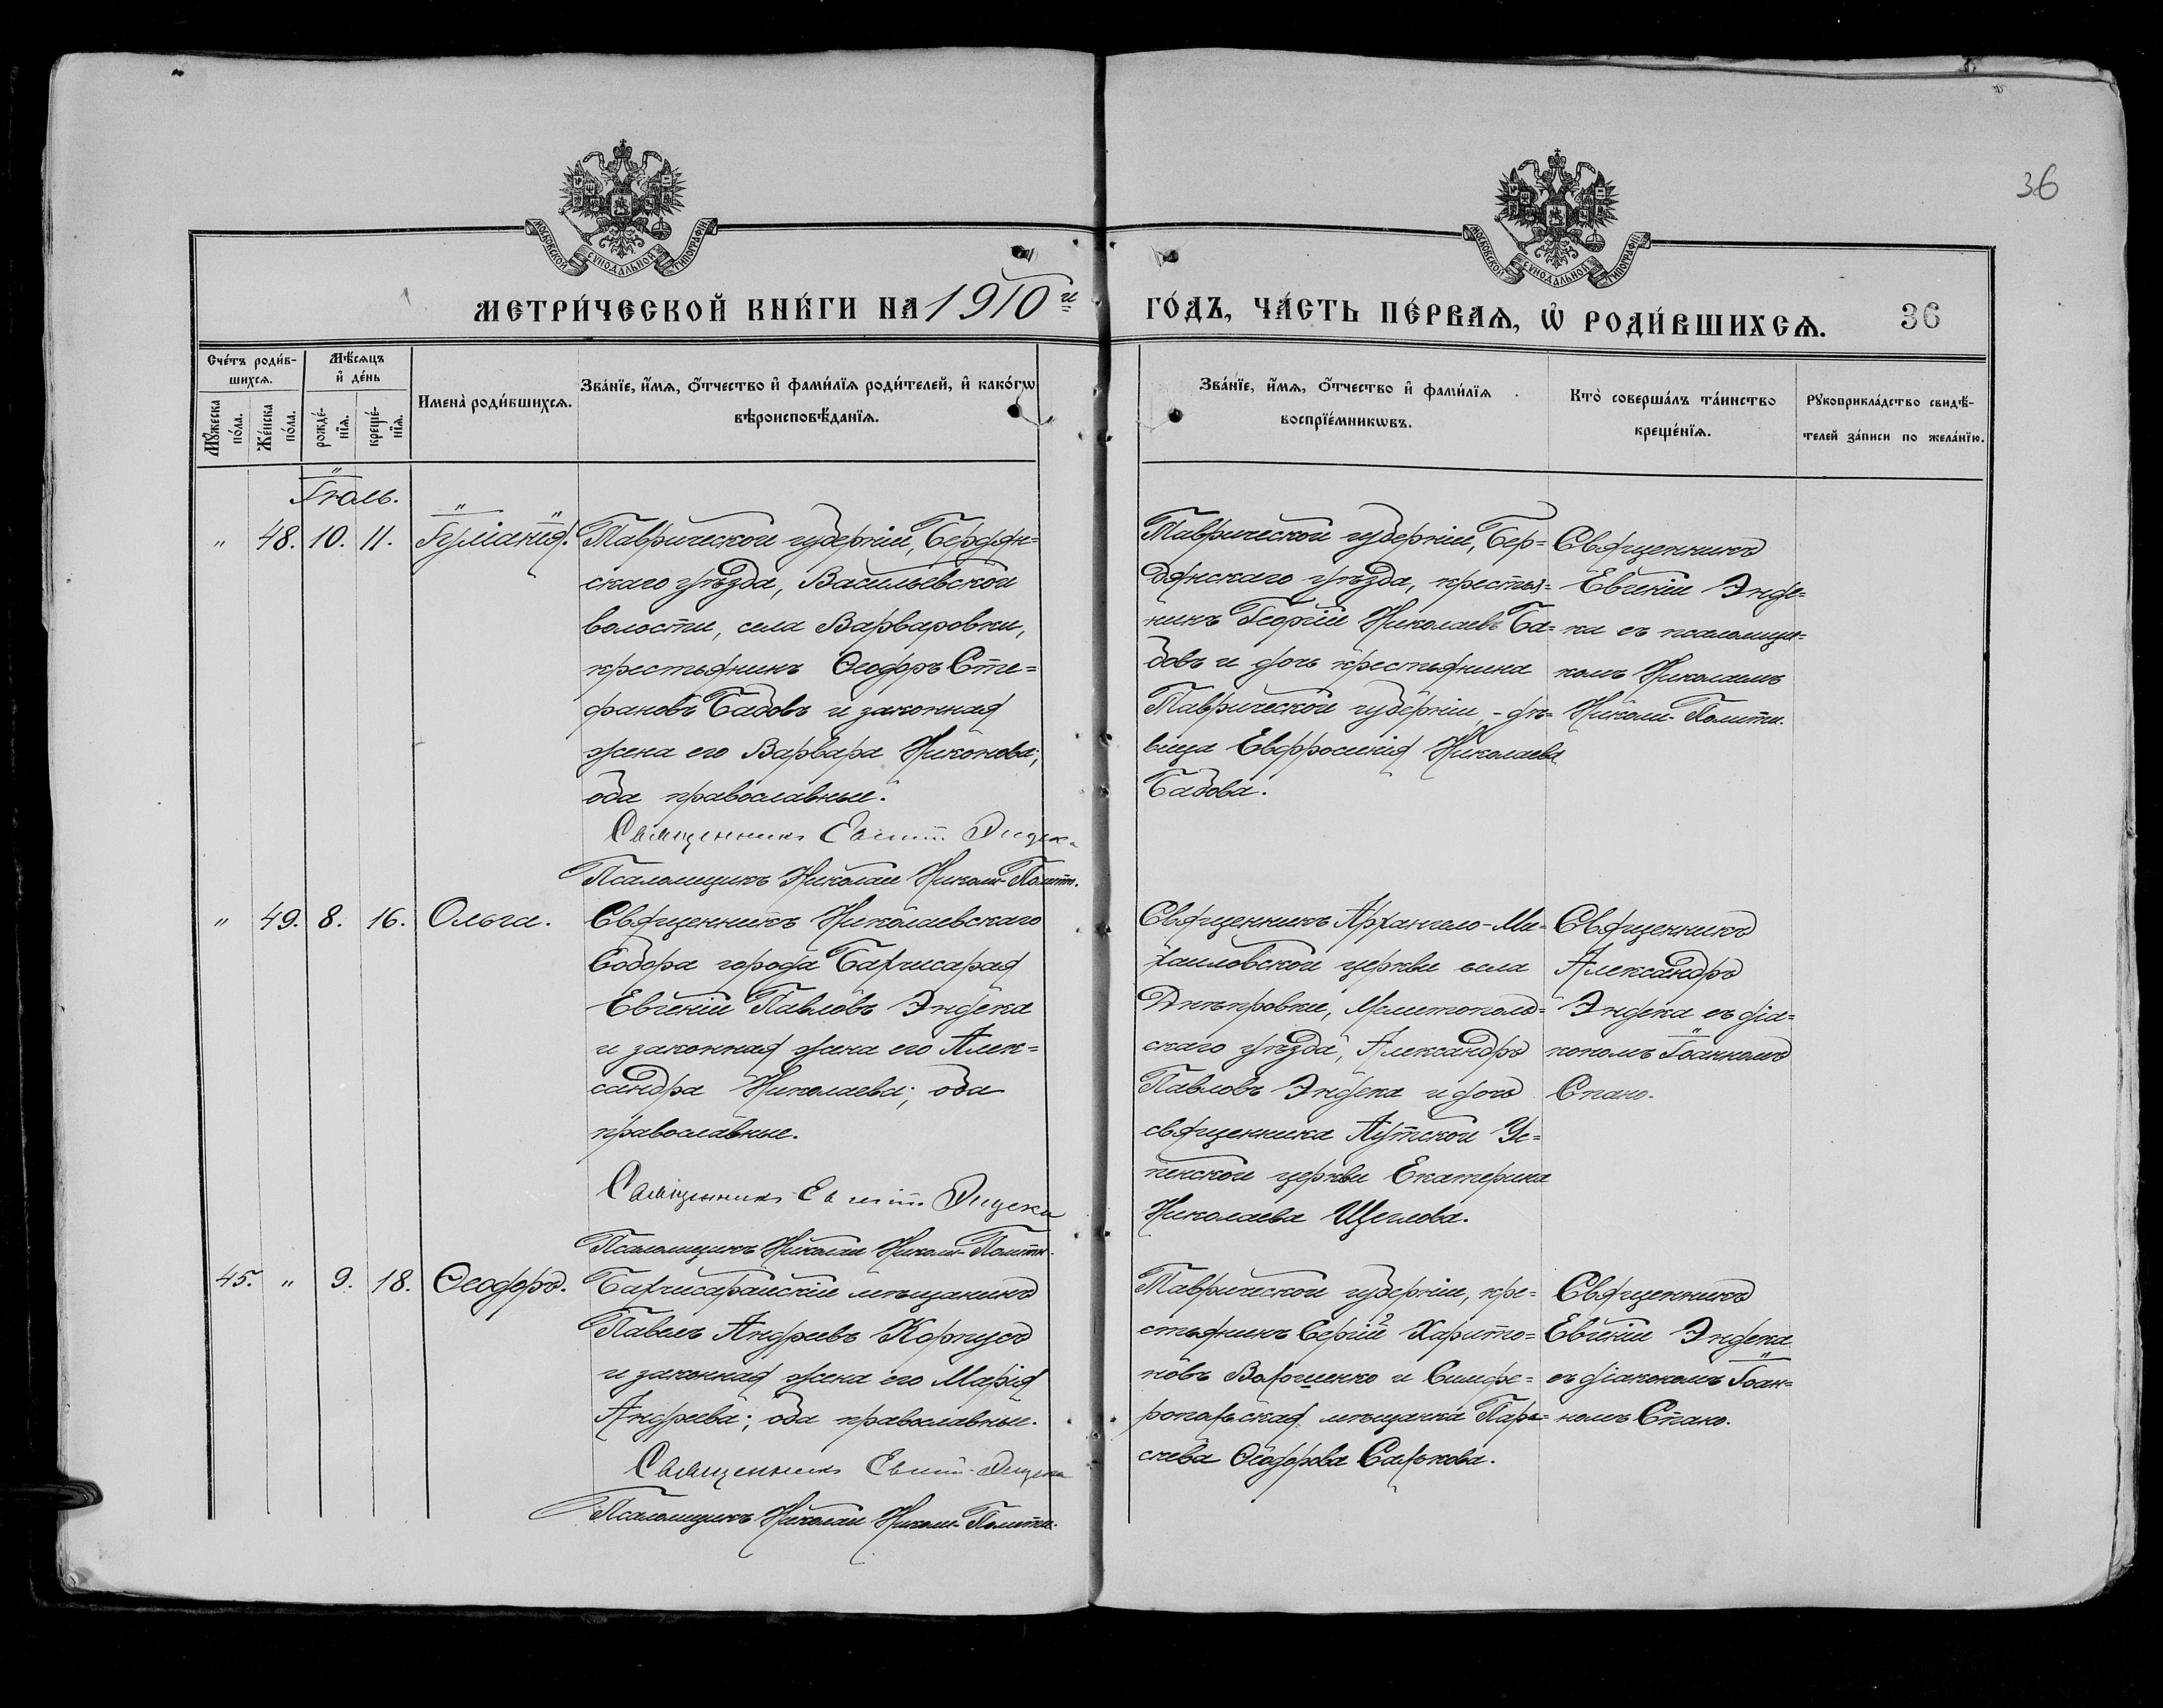 36
МОСКОВСКОЙ СѴНОДАЛЬНОЙ ТИПОГРАФІИ
МОСКОВСКОЙ СѴНОДАЛЬНОЙ ТИПОГРАФІИ
МЕТРИ́ЧЕСКОЙ КНИ́ГИ НА 1910й
ГО́ДЪ, ЧА́СТЬ ПЕ́РВАѦ, Ѽ РОДИ́ВШИХСѦ. 36
Сче́тъ роди́в-
шихсѧ.
Мꙋ́жеска
по́ла.
Же́нска
по́ла.
Мѣ́сѧцъ
и҆ де́нь
рожде́-
нїѧ.
креще́-
нїѧ.
Имена̀ роди́вшихсѧ.
Зва́нїе, и҆́мѧ, ѻ҆́тчество и҆ фами́лїѧ роди́телей, и҆ како́гѡ
вѣроисповѣ́данїѧ.
Зва́нїе, и҆́мѧ, ѻ҆́тчество и҆ фами́лїѧ
воспрїе́мникѡвъ.
Кто̀ соверша́лъ та́инство
креще́нїѧ.
Рꙋкоприкла́дство свидѣ́-
телей за́писи по жела́нїю.
Іюль.
" 48. 10. 11. Іуліанія.
Таврической губерніи, Бердян=
скаго уѣзда, Васильевской
волости, села Варваровки,
крестьянинъ Ѳеодоръ Сте=
фановъ Бабовъ и законная
жена его Варвара Никонова;
оба православные.
Священникъ Евгеній Эндека
Псаломщикъ Николай Николи-Полити.
Таврической губерніи, Бер=
дянскаго уѣзда, крестья=
нинъ Георгій Николаевъ Ба=
бовъ и дочь крестьянина
Таврической губерніи, - дѣ=
вица Евфросинія Николаева
Бабова.
Священникъ
Евгеній Энде=
ка съ псаломщи=
комъ Николаемъ
Николи-Полити.
" 49. 8. 16. Ольга.
Священникъ Николаевскаго
Собора города Бахчисарая
Евгеній Павловъ Эндека
и законная жена его Алек=
сандра Николаева; оба
православные.
Священникъ Евгеній Эндека
Псаломщикъ Николай Николи-Полити.
Священникъ Архангело-Ми=
хайловской церкви села
Днѣпровки, Мелитополь=
скаго уѣзда, Александръ
Павловъ Эндека и дочь
священника Аутской Ус=
пенской церкви Екатерина
Николаева Щеглова.
Священникъ
Александръ
Эндека съ діа=
кономъ Іоанномъ
Спано.
45. " 9. 18. Ѳеодоръ.
Бахчисарайскій мѣщанинъ
Павелъ Андреевъ Корпусъ
и законная жена его Марія
Андреева; оба православные.
Священникъ Евгеній Эндека
Псаломщикъ Николай Николи-Полити.
Таврической губерніи, кре=
стьянинъ Сергій Харито=
новъ Волошенко и Симфе=
ропольская мѣщанка Пара=
скева Ѳеодорова Салькова.
Священникъ
Евгеній Эндека
съ діакономъ Іоан=
номъ Спано.